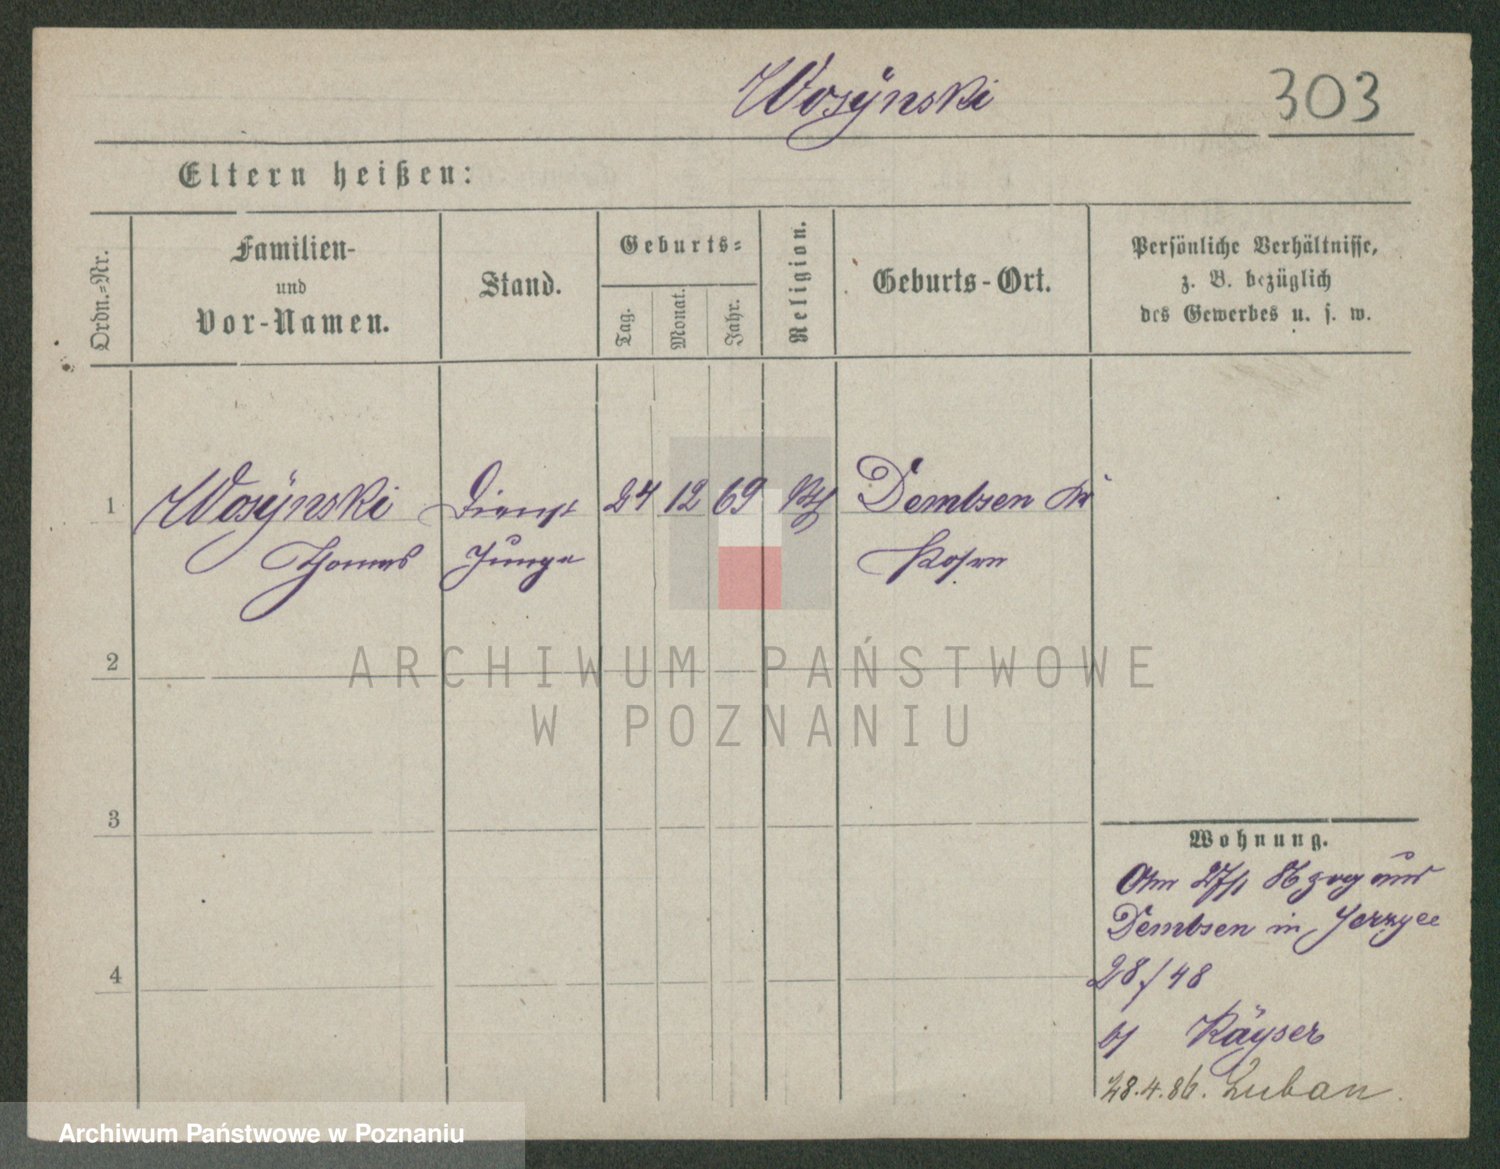 Wosÿnski 303
Eltern heißen:
Ordn.-Nr.
Familien-
und
Vor-Namen.
Stand.
Geburts-
Tag.
Monat.
Jahr.
Religion.
Geburts-Ort.
Persönliche Verhältnisse,
z. B. bezüglich
des Gewerbes u. s. w.
1 Wosÿnski Dienst 24 12 69 kth Dembsen Kr
Thomas Junge Posen
2
ARCHIWUM PAŃSTWOWE
W POZNANIU
3
Wohnung.
Am 27/1 86 zog aus
Dembsen in Jerzyce
28/48
b/ Käyser
4
28.4.86. Luban
Archiwum Państwowe w Poznaniu